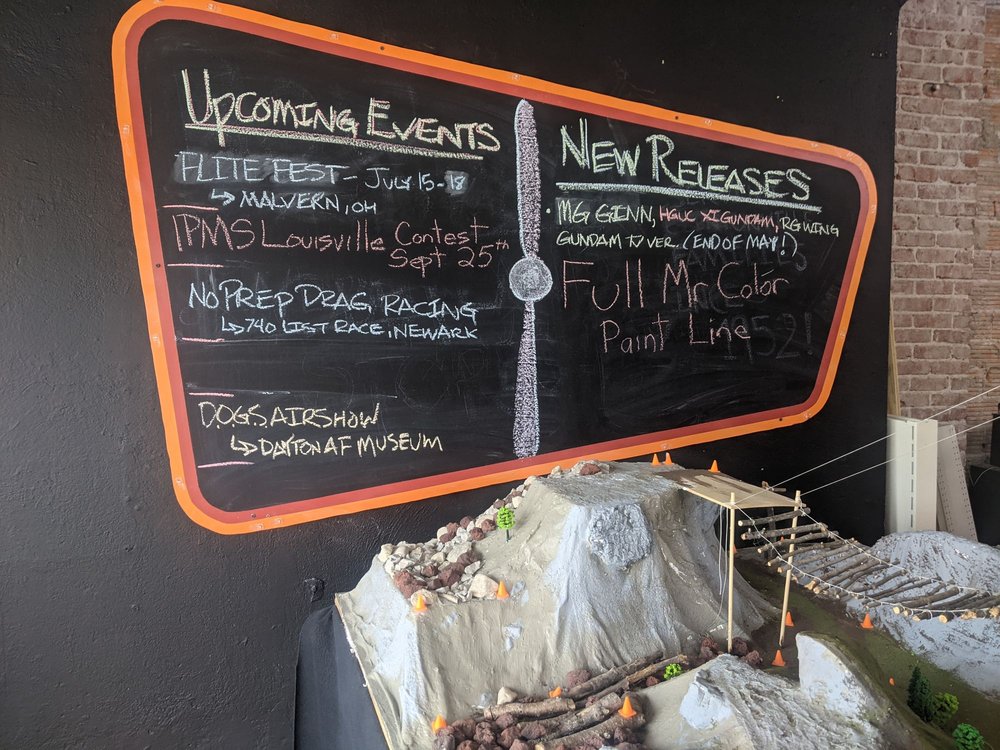 Upcoming Events
FLITE FEST - July 15-18
↳ MALVERN, OH
IPMS Louisville Contest
Sept 25th
NO PREP DRAG RACING
↳ 740 LIST RACE, NEWARK
D.O.G.S AIRSHOW
↳ DAYTON AF MUSEUM
New Releases
• MG GINN, HGUC XI GUNDAM, RG WING
GUNDAM TV VER. (END OF MAY!)
Full Mr Color
Paint Line
1952!